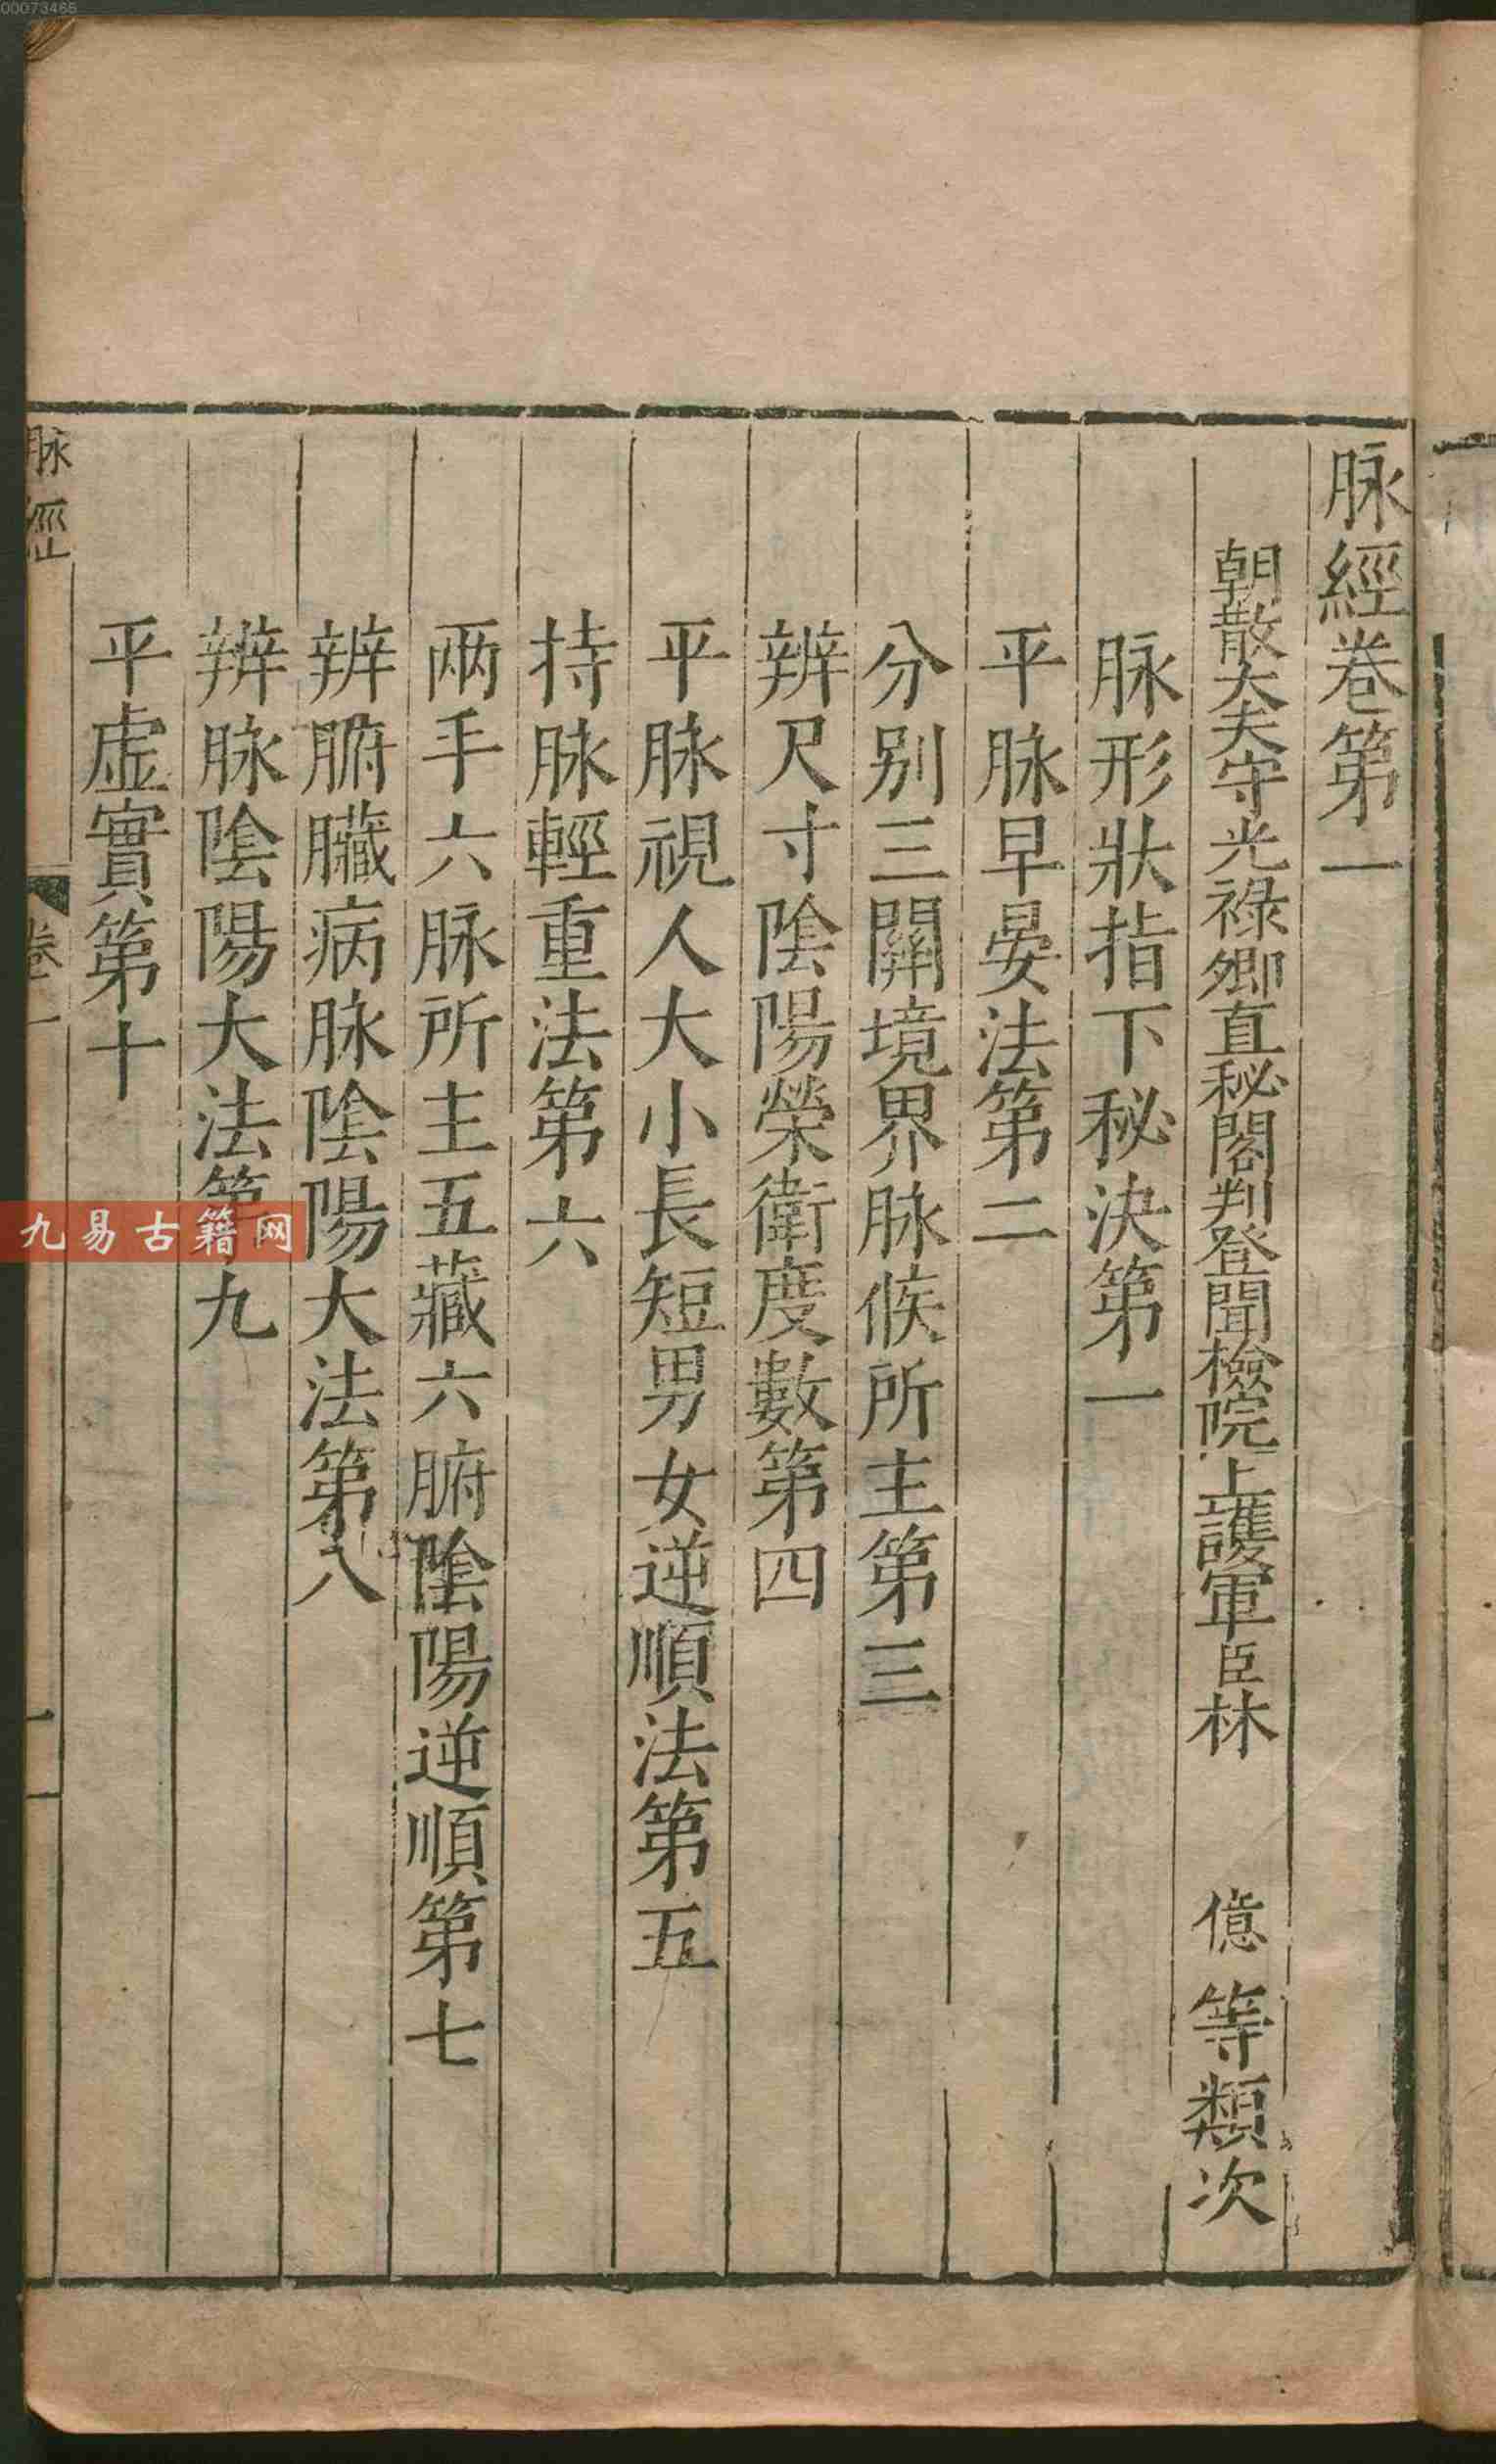 脉經卷第一
朝散大夫守光祿卿直秘閣判登聞檢院上護軍臣林億等類次
脉形狀指下秘決第一
平脉早晏法第二
分别三關境界脉候所主第三
辨尺寸陰陽榮衛度數第四
平脉視人大小長短男女逆順法第五
持脉輕重法第六
兩手六脉所主五藏六腑陰陽逆順第七
辨腑臟病脉陰陽大法第八
辨脉陰陽大法第九
平虛實第十
脉經
卷一
一
九易古籍网
00073466